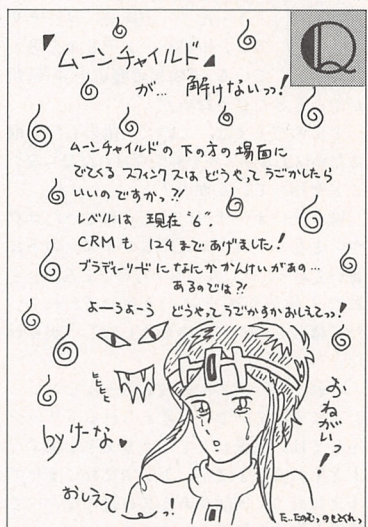 Q
「ムーンチャイルド」
が… 解けないっっ!
ムーンチャイルドの 下の方の場面に
でてくる スフィンクスは どうやって うごかしたら
いいのですかっ?!
レベルは 現在“6”.
CRMも 124まであげました!
ブラディーリードになにか かんけいがあの…
あるのでは?!
よーうよーう どうやってうごかすかおしえてっっ!
ヒヒヒヒ
by けーな♥
おねがいっ!
おしえてーっ!